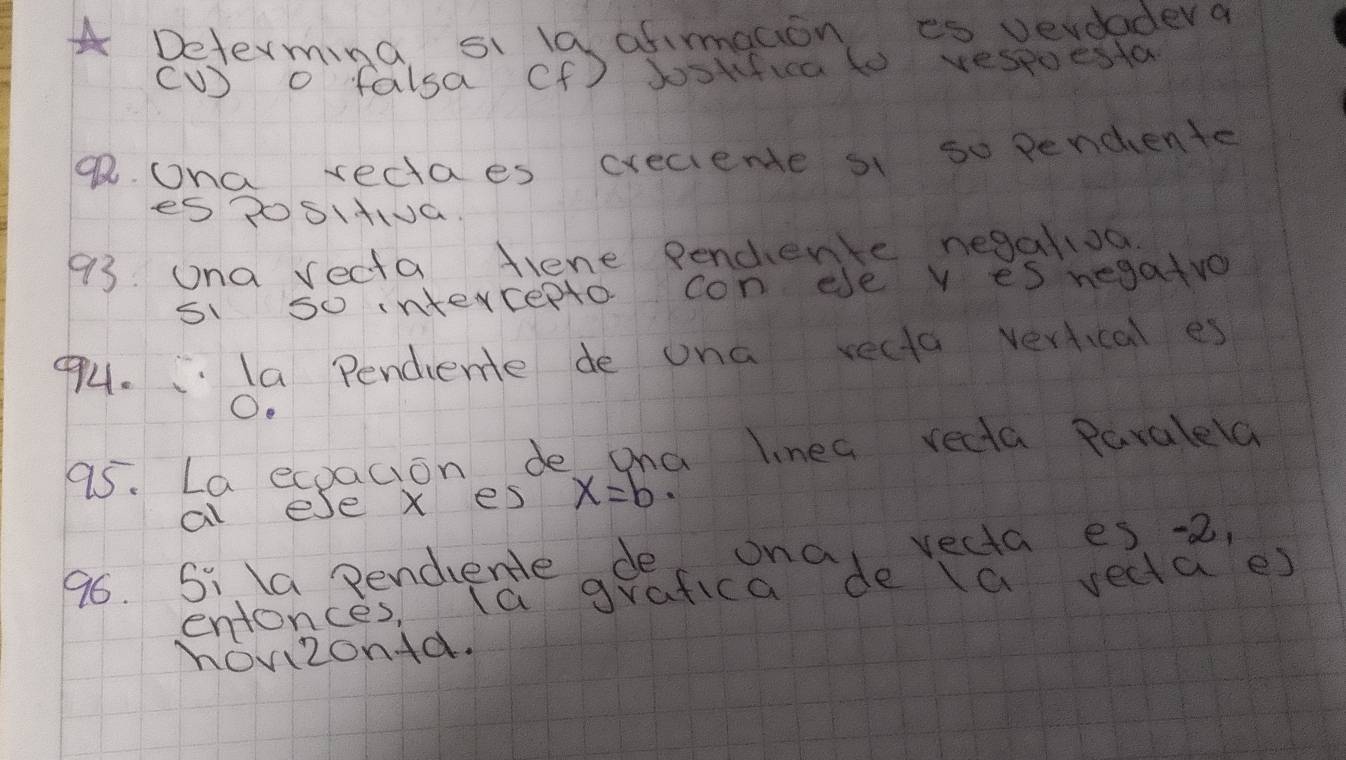 ☆ Determina si la afirmación es verdadera
(v) o falsa (f) Justifica tu respuesta
92. Una recta es creciente si su pendiente
es positiva.
93. Una recta tiene pendiente negativa.
si su intercepto con eje y es negatvo
94. la pendiente de una recta vertical es
0.
95. La ecuación de una linea recta paralela
al eje x es x=b.
96. Si la pendiente de una recta es -2,
entonces, la grafica de la recta es
horizonta.